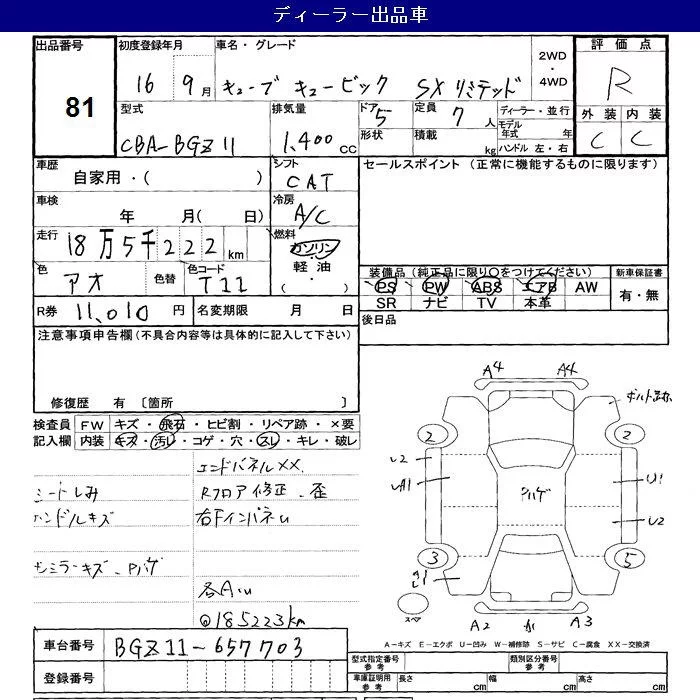 ディーラー出品車
出品番号
81
初度登録年月
16 9月
車名・グレード
キューブ キュービック SXリミテッド
2WD・4WD
評価点
R
外装 内装
C C
型式
CBA-BGZ11
排気量
1,400cc
ドア 5
形状
定員 7人
積載 kg
ディーラー・並行
モデル年式 年
ハンドル 左・右
車歴
自家用・( )
シフト
CAT
セールスポイント (正常に機能するものに限ります)
車検
年 月( 日)
冷房
A/C
走行
18万5千222km
燃料
ガソリン・軽油・( )
色
アオ
色替
色コード
T11
装備品(純正品に限り○をつけてください)
PS PW ABS エアB AW
SR ナビ TV 本革
新車保証書
有・無
R券 11,010円
名変期限 月 日
後日品
注意事項申告欄(不具合内容等は具体的に記入して下さい)
修復歴 有 〔箇所
検査員記入欄
FW キズ・飛石・ヒビ割・リペア跡・×要
内装 キズ・汚レ・コゲ・穴・スレ・キレ・破レ
エンドパネルXX.
シートしみ
Rフロア修正、歪
ハンドルキズ
右FインパネU
各AU
185223km
A4 A4
ボルト
2 2
U2
UA1
U1
U2
3 5
スペア
A2 A3
A-キズ E-エクボ U-凹み W-補修跡 S-サビ C-腐食 XX-交換済
車台番号 BGZ11-657703
登録番号
型式指定番号 参考
類別区分番号 参考
車庫証明用 参考
長さ cm 幅 cm 高さ cm